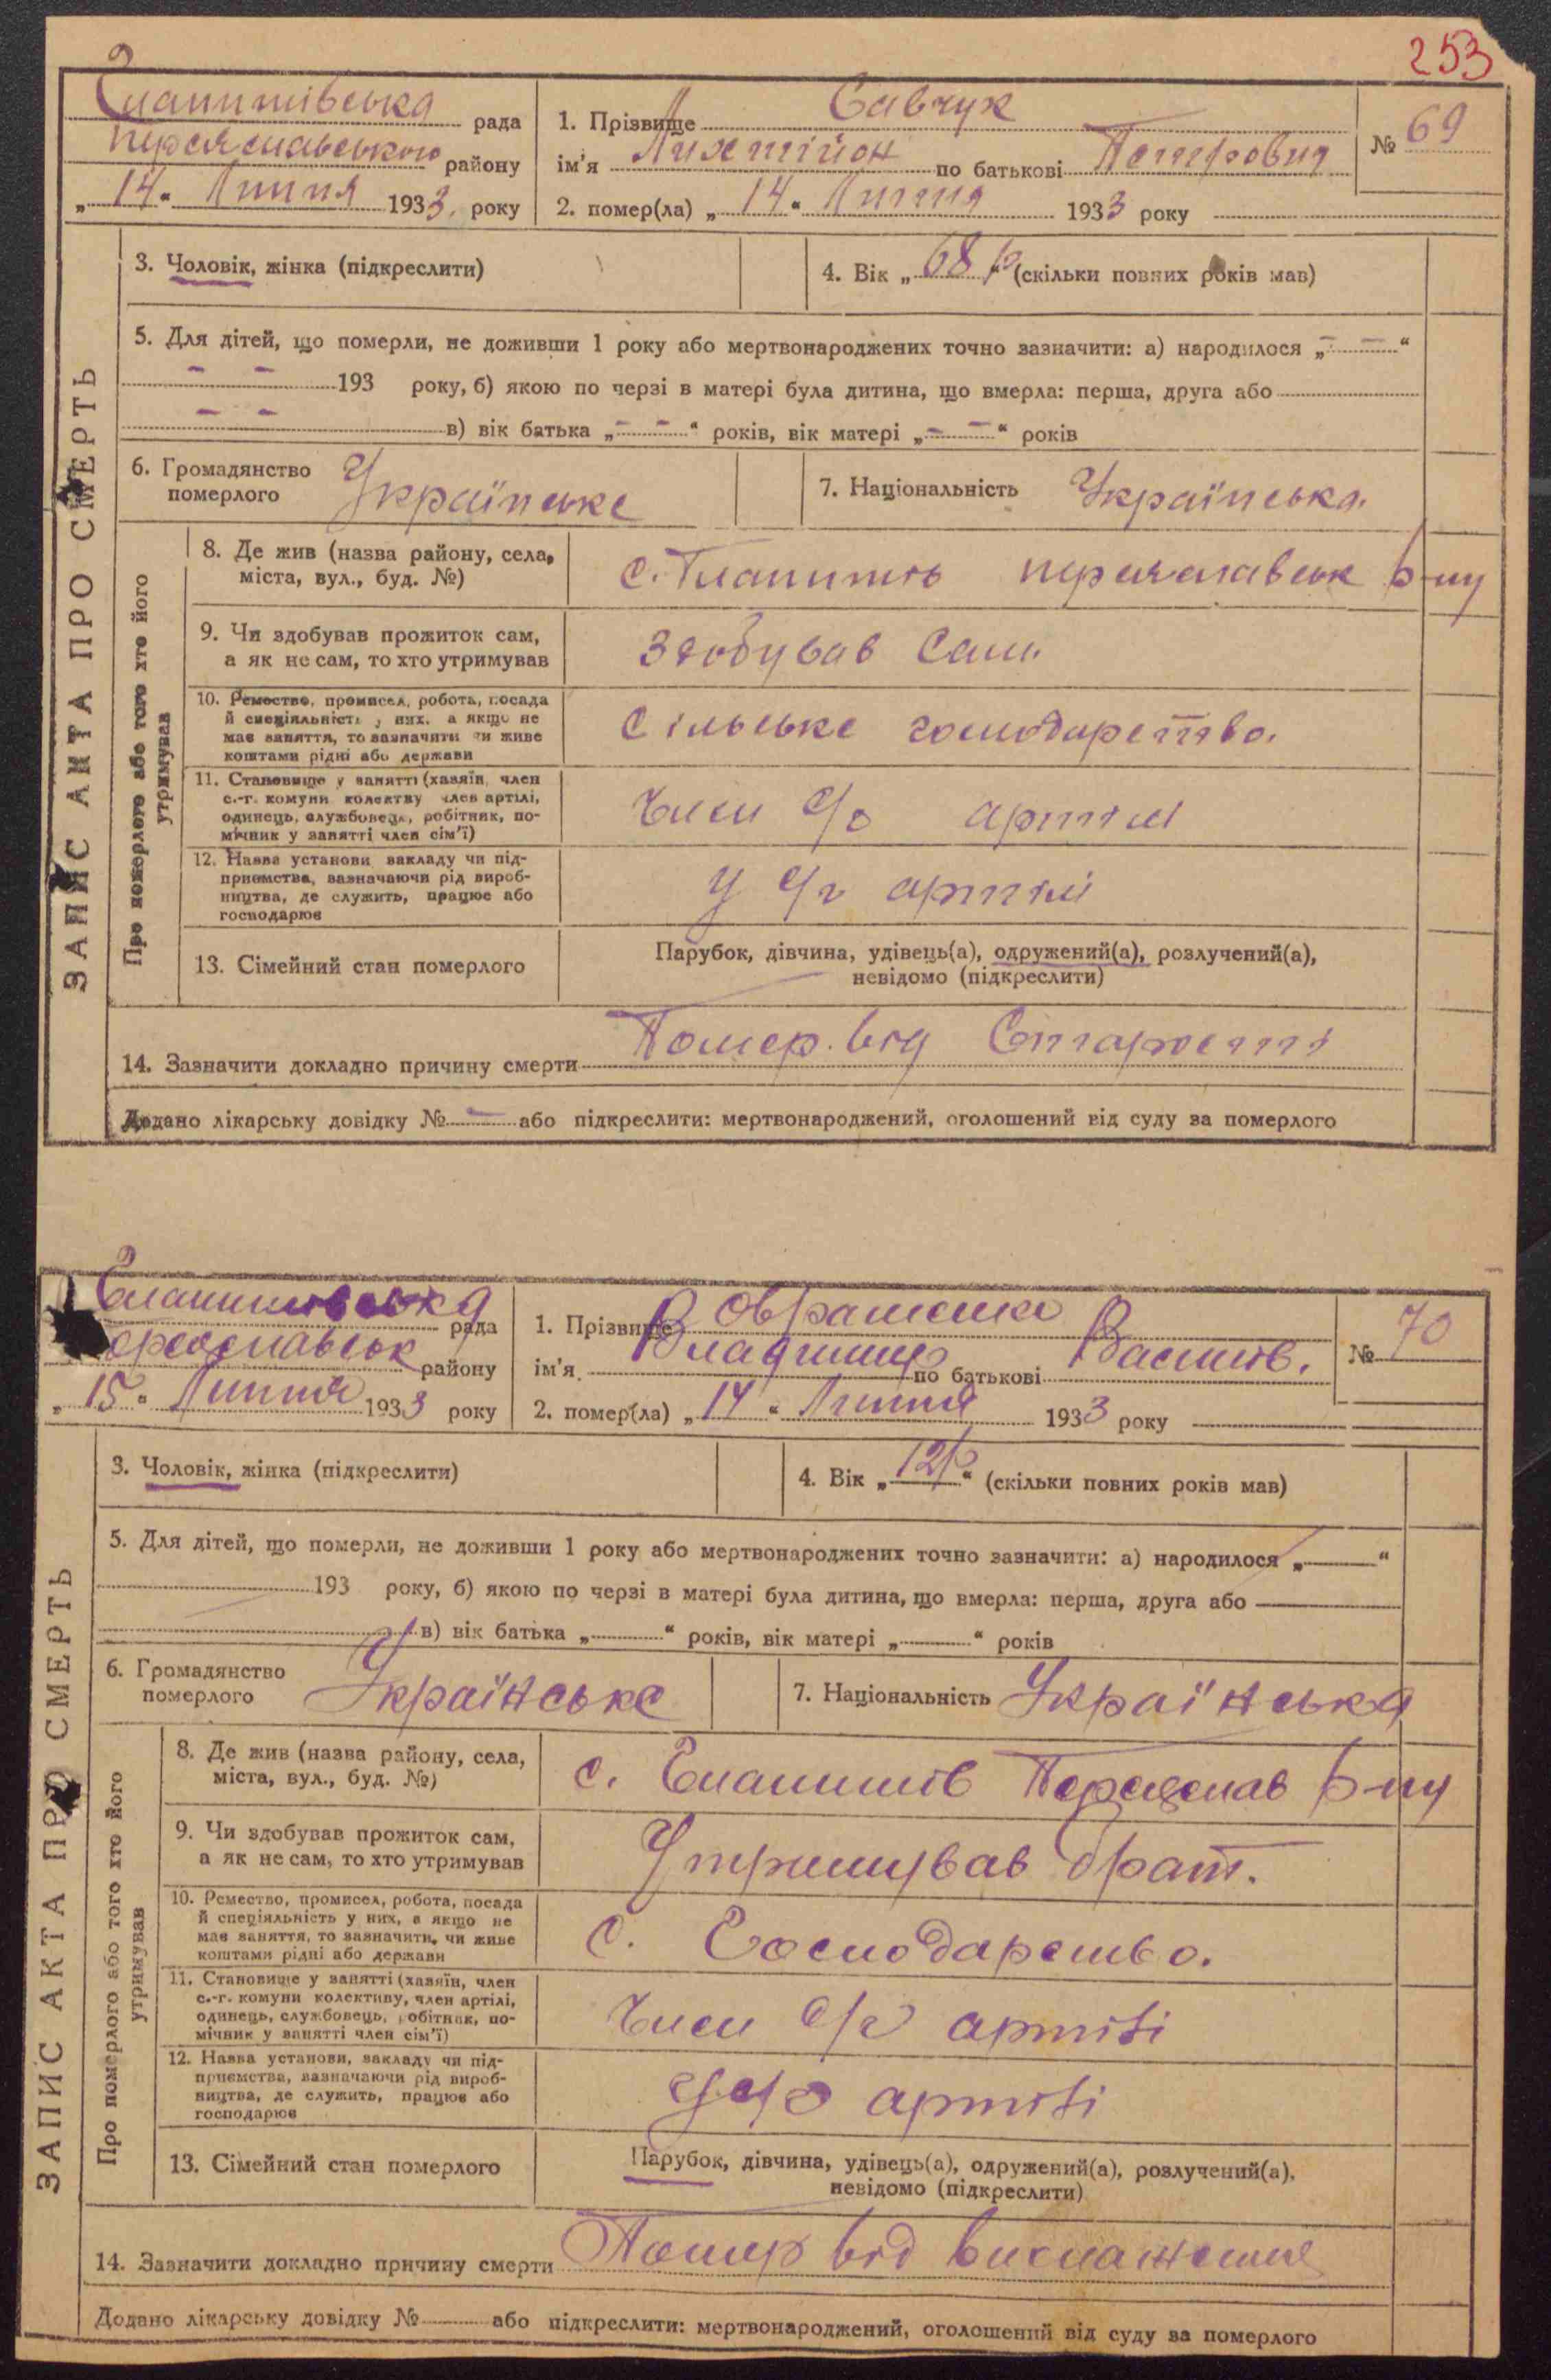 253
рада
Переяславського району
„14“ Липня 1933 року
1. Прізвище Савчук
ім'я по батькові Петрович
2. помер(ла) „14“ Липня 1933 року
№ 69
ЗАПИС АКТА ПРО СМЕРТЬ
3. Чоловік, жінка (підкреслити)
4. Вік „68 р“ (скільки повних років мав)
5. Для дітей, що померли, не доживши 1 року або мертвонароджених точно зазначити: а) народилося „- -“
- - 193 року, б) якою по черзі в матері була дитина, що вмерла: перша, друга або
- - в) вік батька „- -“ років, вік матері „- -“ років
6. Громадянство
померлого
Українське
7. Національність Українська
Про померлого або того хто його
утримував
8. Де жив (назва району, села,
міста, вул., буд. №)
с. переяславськ р-ну
9. Чи здобував прожиток сам,
а як не сам, то хто утримував
Здобував Сам
10. Ремество, промисел, робота, посада
й спеціяльність у них, а якщо не
має заняття, то зазначити чи живе
коштами рідні або держави
Сільське господарство.
11. Становище у занятті (хазяїн, член
с.-г. комуни колективу член артілі,
одинець, службовець, робітник, по-
мічник у занятті член сім'ї)
Член с/г артілі
12. Назва установи закладу чи під-
приємства, зазначаючи рід вироб-
ництва, де служить, працює або
господарює
У с/г артілі
13. Сімейний стан померлого
Парубок, дівчина, удівець(а), одружений(а), розлучений(а),
невідомо (підкреслити)
14. Зазначити докладно причину смерти Помер від Старости
Додано лікарську довідку № - або підкреслити: мертвонароджений, оголошений від суду за померлого
рада
району
„15“ Липня 1933 року
1. Прізвище
ім'я Владимир по батькові Васильов.
2. помер(ла) „14“ Липня 1933 року
№ 70
ЗАПИС АКТА ПРО СМЕРТЬ
3. Чоловік, жінка (підкреслити)
4. Вік „12 р“ (скільки повних років мав)
5. Для дітей, що померли, не доживши 1 року або мертвонароджених точно зазначити: а) народилося „ “
193 року, б) якою по черзі в матері була дитина, що вмерла: перша, друга або
в) вік батька „ “ років, вік матері „ “ років
6. Громадянство
померлого
Українське
7. Національність Українська
Про померлого або того хто його
утримував
8. Де жив (назва району, села,
міста, вул., буд. №)
с. Переяслав р-ну
9. Чи здобував прожиток сам,
а як не сам, то хто утримував
Утримував брат.
10. Ремество, промисел, робота, посада
й спеціяльність у них, а якщо не
має заняття, то зазначити, чи живе
коштами рідні або держави
С. Господарство.
11. Становище у занятті (хазяїн, член
с.-г. комуни колективу, член артілі,
одинець, службовець, робітник, по-
мічник у занятті член сім'ї)
Член с/г артілі
12. Назва установи, закладу чи під-
приємства, зазначаючи рід вироб-
ництва, де служить, працює або
господарює
У с/г артілі
13. Сімейний стан померлого
Парубок, дівчина, удівець(а), одружений(а), розлучений(а),
невідомо (підкреслити)
14. Зазначити докладно причину смерти Помер від виснаження
Додано лікарську довідку № або підкреслити: мертвонароджений, оголошений від суду за померлого